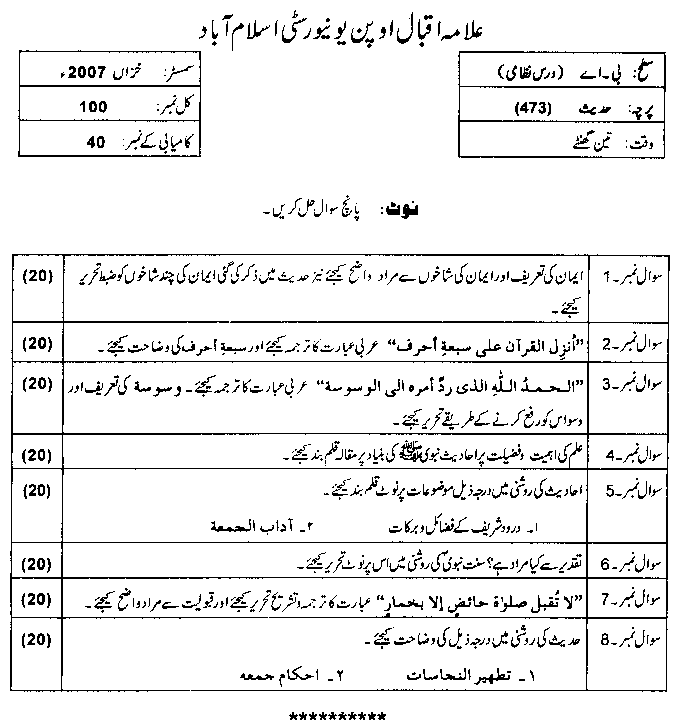 علامہ اقبال اوپن یونیورسٹی اسلام آباد
سطح: بی۔اے (درس نظامی)
سمسٹر: خزاں 2007ء
پرچہ: حدیث (473)
کل نمبر: 100
وقت: تین گھنٹے
کامیابی کے نمبر: 40
نوٹ: پانچ سوال حل کریں۔
سوال نمبر۔1 ایمان کی تعریف اور ایمان کی شاخوں سے مراد واضح کیجئے نیز حدیث میں ذکر کی گئی ایمان کی چند شاخوں کو ضبط تحریر (20)
کیجئے۔
سوال نمبر۔2 ”أنزل القرآن على سبعةِ أحرف“ عربی عبارت کا ترجمہ کیجئے اور سبعة أحرف کی وضاحت کیجئے۔ (20)
سوال نمبر۔3 ”الحمدُ اللّٰهِ الذی ردّ أمره الی الوسوسة“ عربی عبارت کا ترجمہ کیجئے۔ وسوسة کی تعریف اور (20)
وسواس کو رفع کرنے کے طریقے تحریر کیجئے۔
سوال نمبر۔4 علم کی اہمیت و فضیلت پر احادیث نبوی ﷺ کی بنیاد پر مقالہ قلم بند کیجئے۔ (20)
سوال نمبر۔5 احادیث کی روشنی میں درجہ ذیل موضوعات پر نوٹ قلم بند کیجئے۔ (20)
۱۔ درود شریف کے فضائل و برکات ۲۔ آداب الجمعة
سوال نمبر۔6 تقدیر سے کیا مراد ہے؟ سنت نبویؐ کی روشنی میں اس پر نوٹ تحریر کیجئے۔ (20)
سوال نمبر۔7 ”لا تُقبل صلوٰة حائضٍ إلا بخمارٍ“ عبارت کا ترجمہ و تشریح تحریر کیجئے اور قبولیت سے مراد واضح کیجئے۔ (20)
سوال نمبر۔8 حدیث کی روشنی میں درجہ ذیل کی وضاحت کیجئے۔ (20)
۱۔ تطهیر النجاسات ۲۔ احکام جمعه
**********